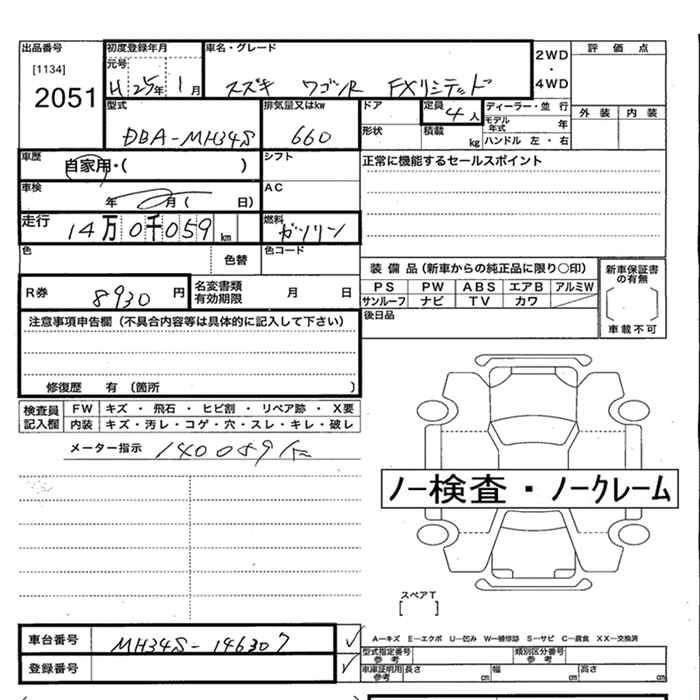 出品番号 初度登録年月 車名・グレード 2WD 評価点
[1134] 元号 ・
2051 H 25年 1月 スズキ ワゴンR FXリミテッド 4WD
型式 排気量又はkw ドア 定員 4人 ディーラー・並行 外装 内装
DBA-MH34S 660 形状 積載 kg モデル年式 年
ハンドル 左・右
車歴 自家用・( ) シフト 正常に機能するセールスポイント
車検 年 月( 日) AC
走行 14万0千059km 燃料 ガソリン
色 色替 色コード
装備品(新車からの純正品に限り○印) 新車保証書の有無
R券 8930円 名変書類有効期限 月 日 PS PW ABS エアB アルミW
サンルーフ ナビ TV カワ 車載不可
注意事項申告欄(不具合内容等は具体的に記入して下さい) 後日品
修復歴 有〔箇所 〕
検査員記入欄 FW キズ・飛石・ヒビ割・リペア跡・X要
内装 キズ・汚レ・コゲ・穴・スレ・キレ・破レ
メーター指示 140059km
ノー検査・ノークレーム
スペアT
[ ]
車台番号 MH34S-146307 A―キズ E―エクボ U―凹み W―補修跡 S―サビ C―腐食 XX―交換済
型式指定番号 参考 類別区分番号 参考
登録番号 車庫証明用 参考 長さ cm 幅 cm 高さ cm